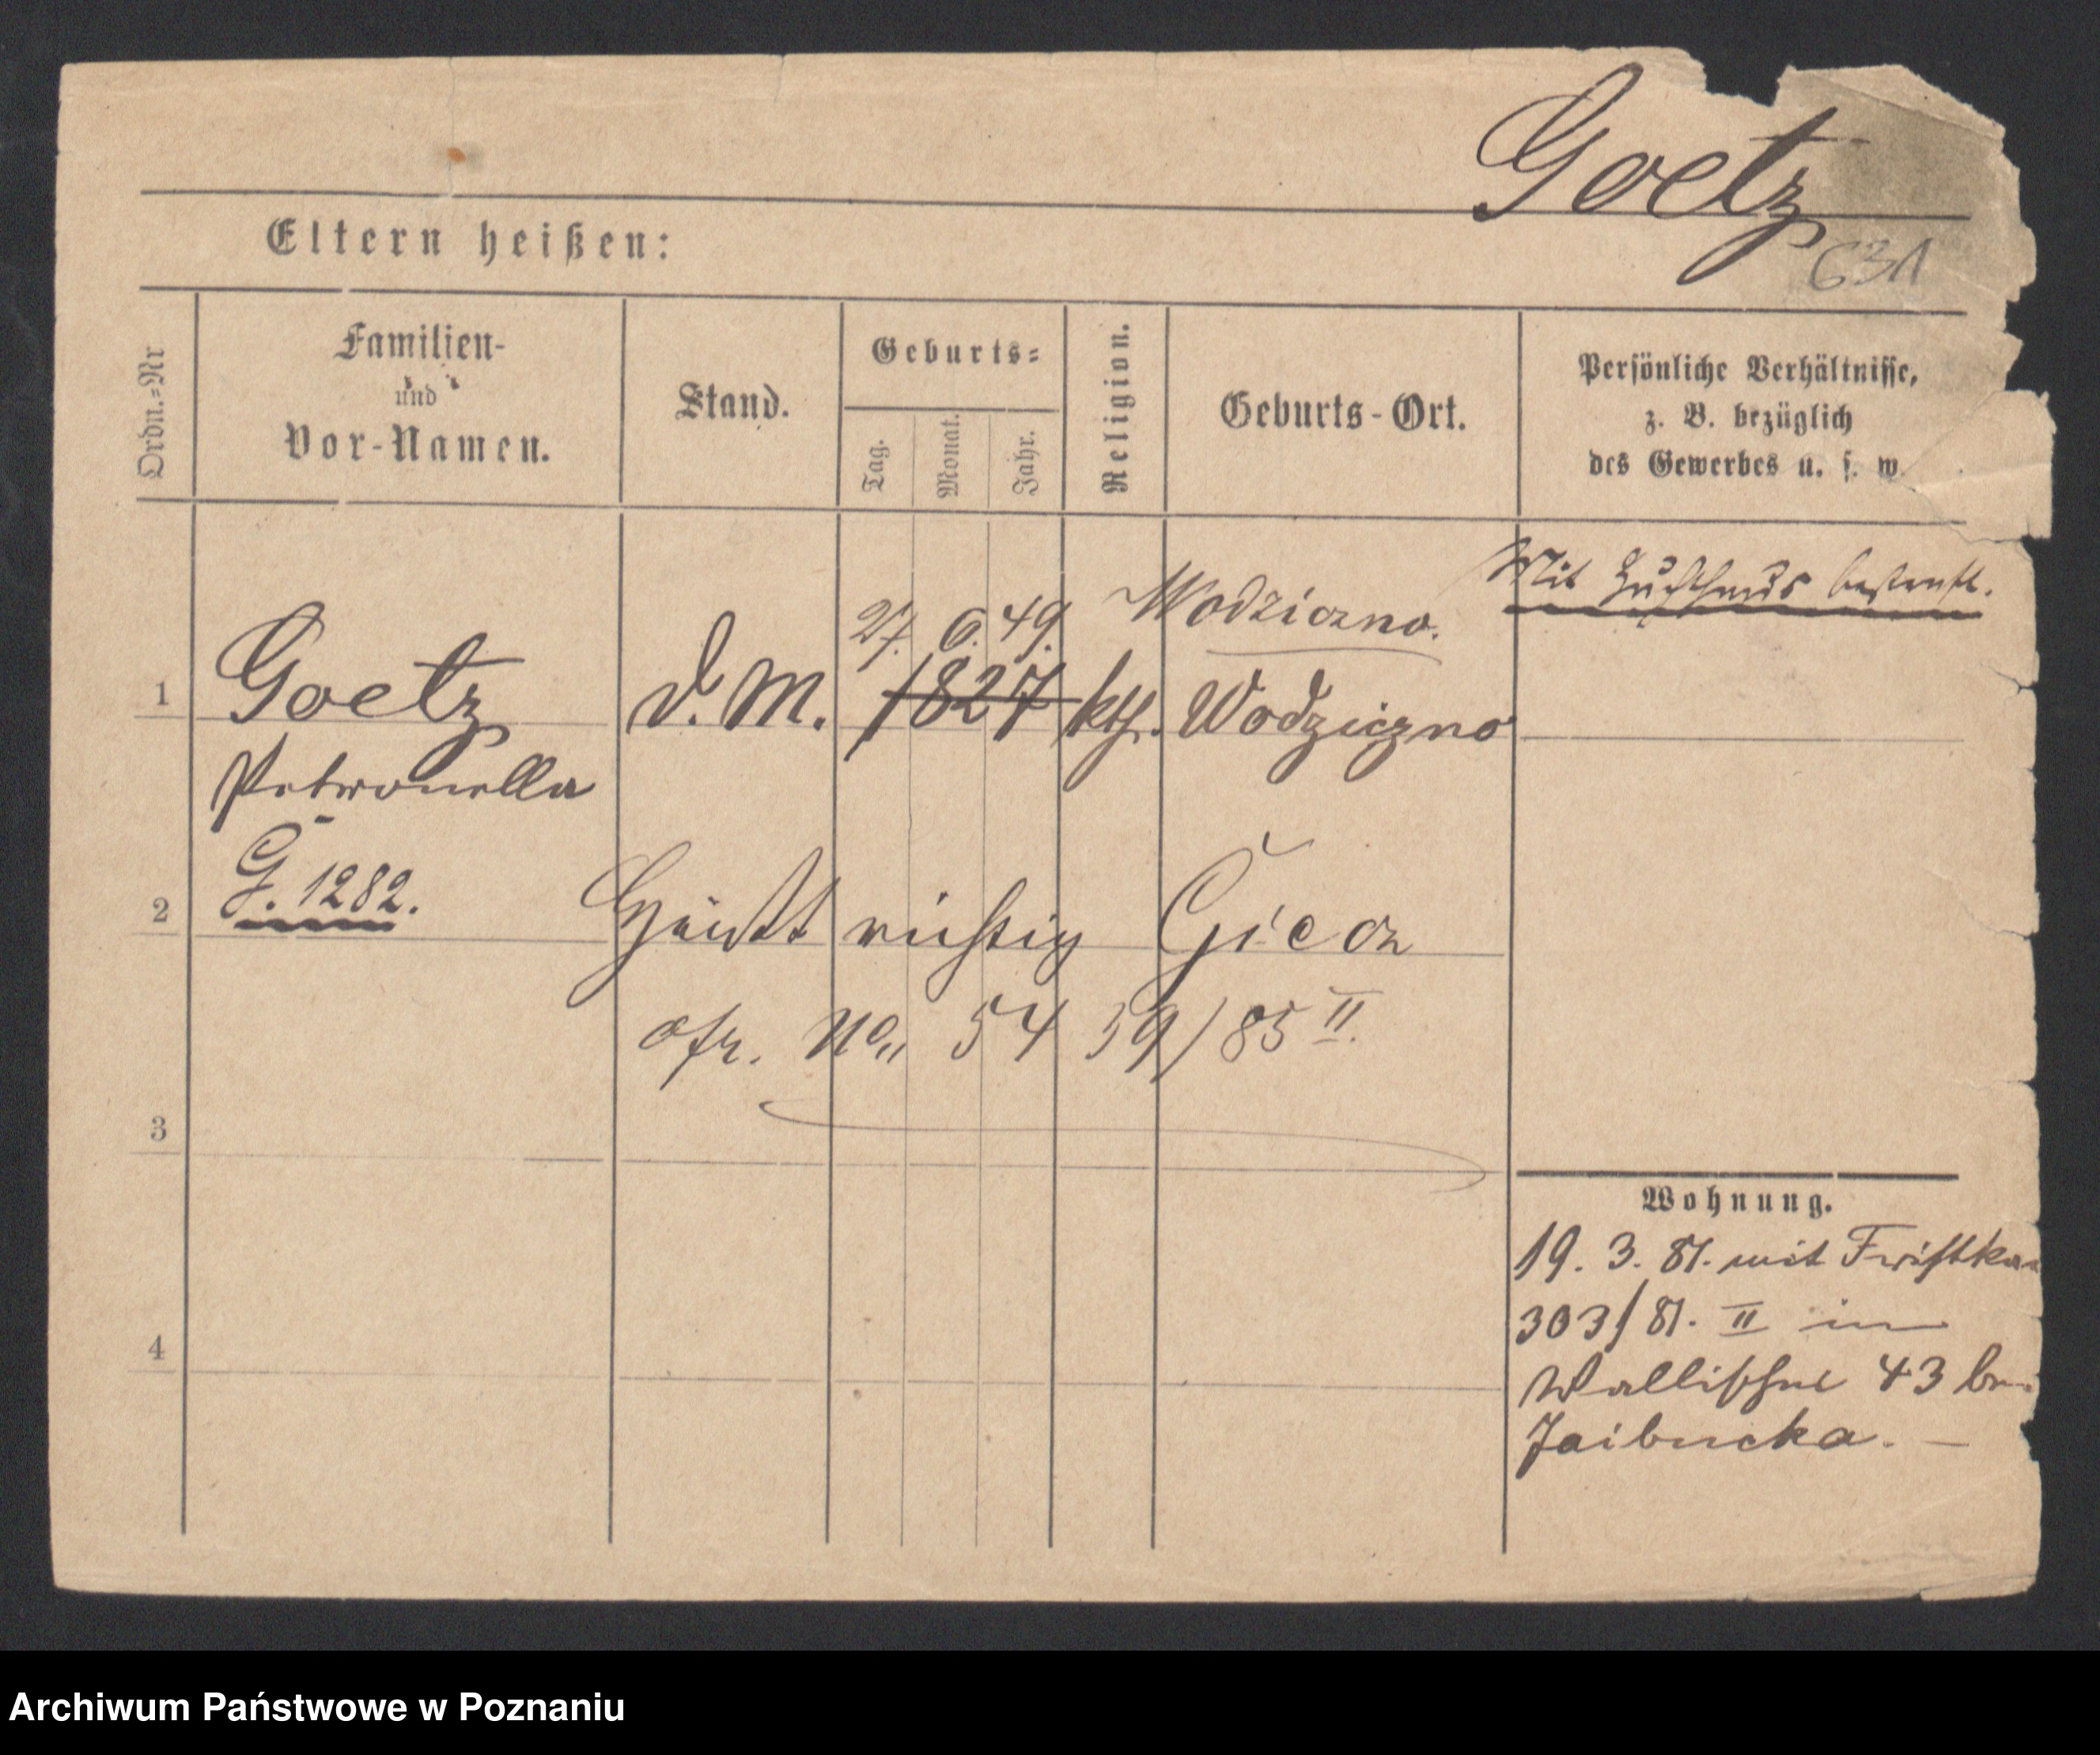 Goetz
631
Eltern heißen:
Ordn.=Nr
Familien-
und
Vor-Namen.
Stand.
Geburts=
Tag.
Monat.
Jahr.
Religion.
Geburts-Ort.
Persönliche Verhältnisse,
z. B. bezüglich
des Gewerbes u. s. w.
Mit Zuchthaus bestraft.
27. 6. 49. Wodziczno.
1 Goetz d. M. 1827 kth. Wodziczno
Petronella
2 G. 1282. richtig
cfr. No 54 59/85 II.
3
Wohnung.
19. 3. 81. mit
303/81. II in
4 Wallischei 43
Jaibucka. —
Archiwum Państwowe w Poznaniu